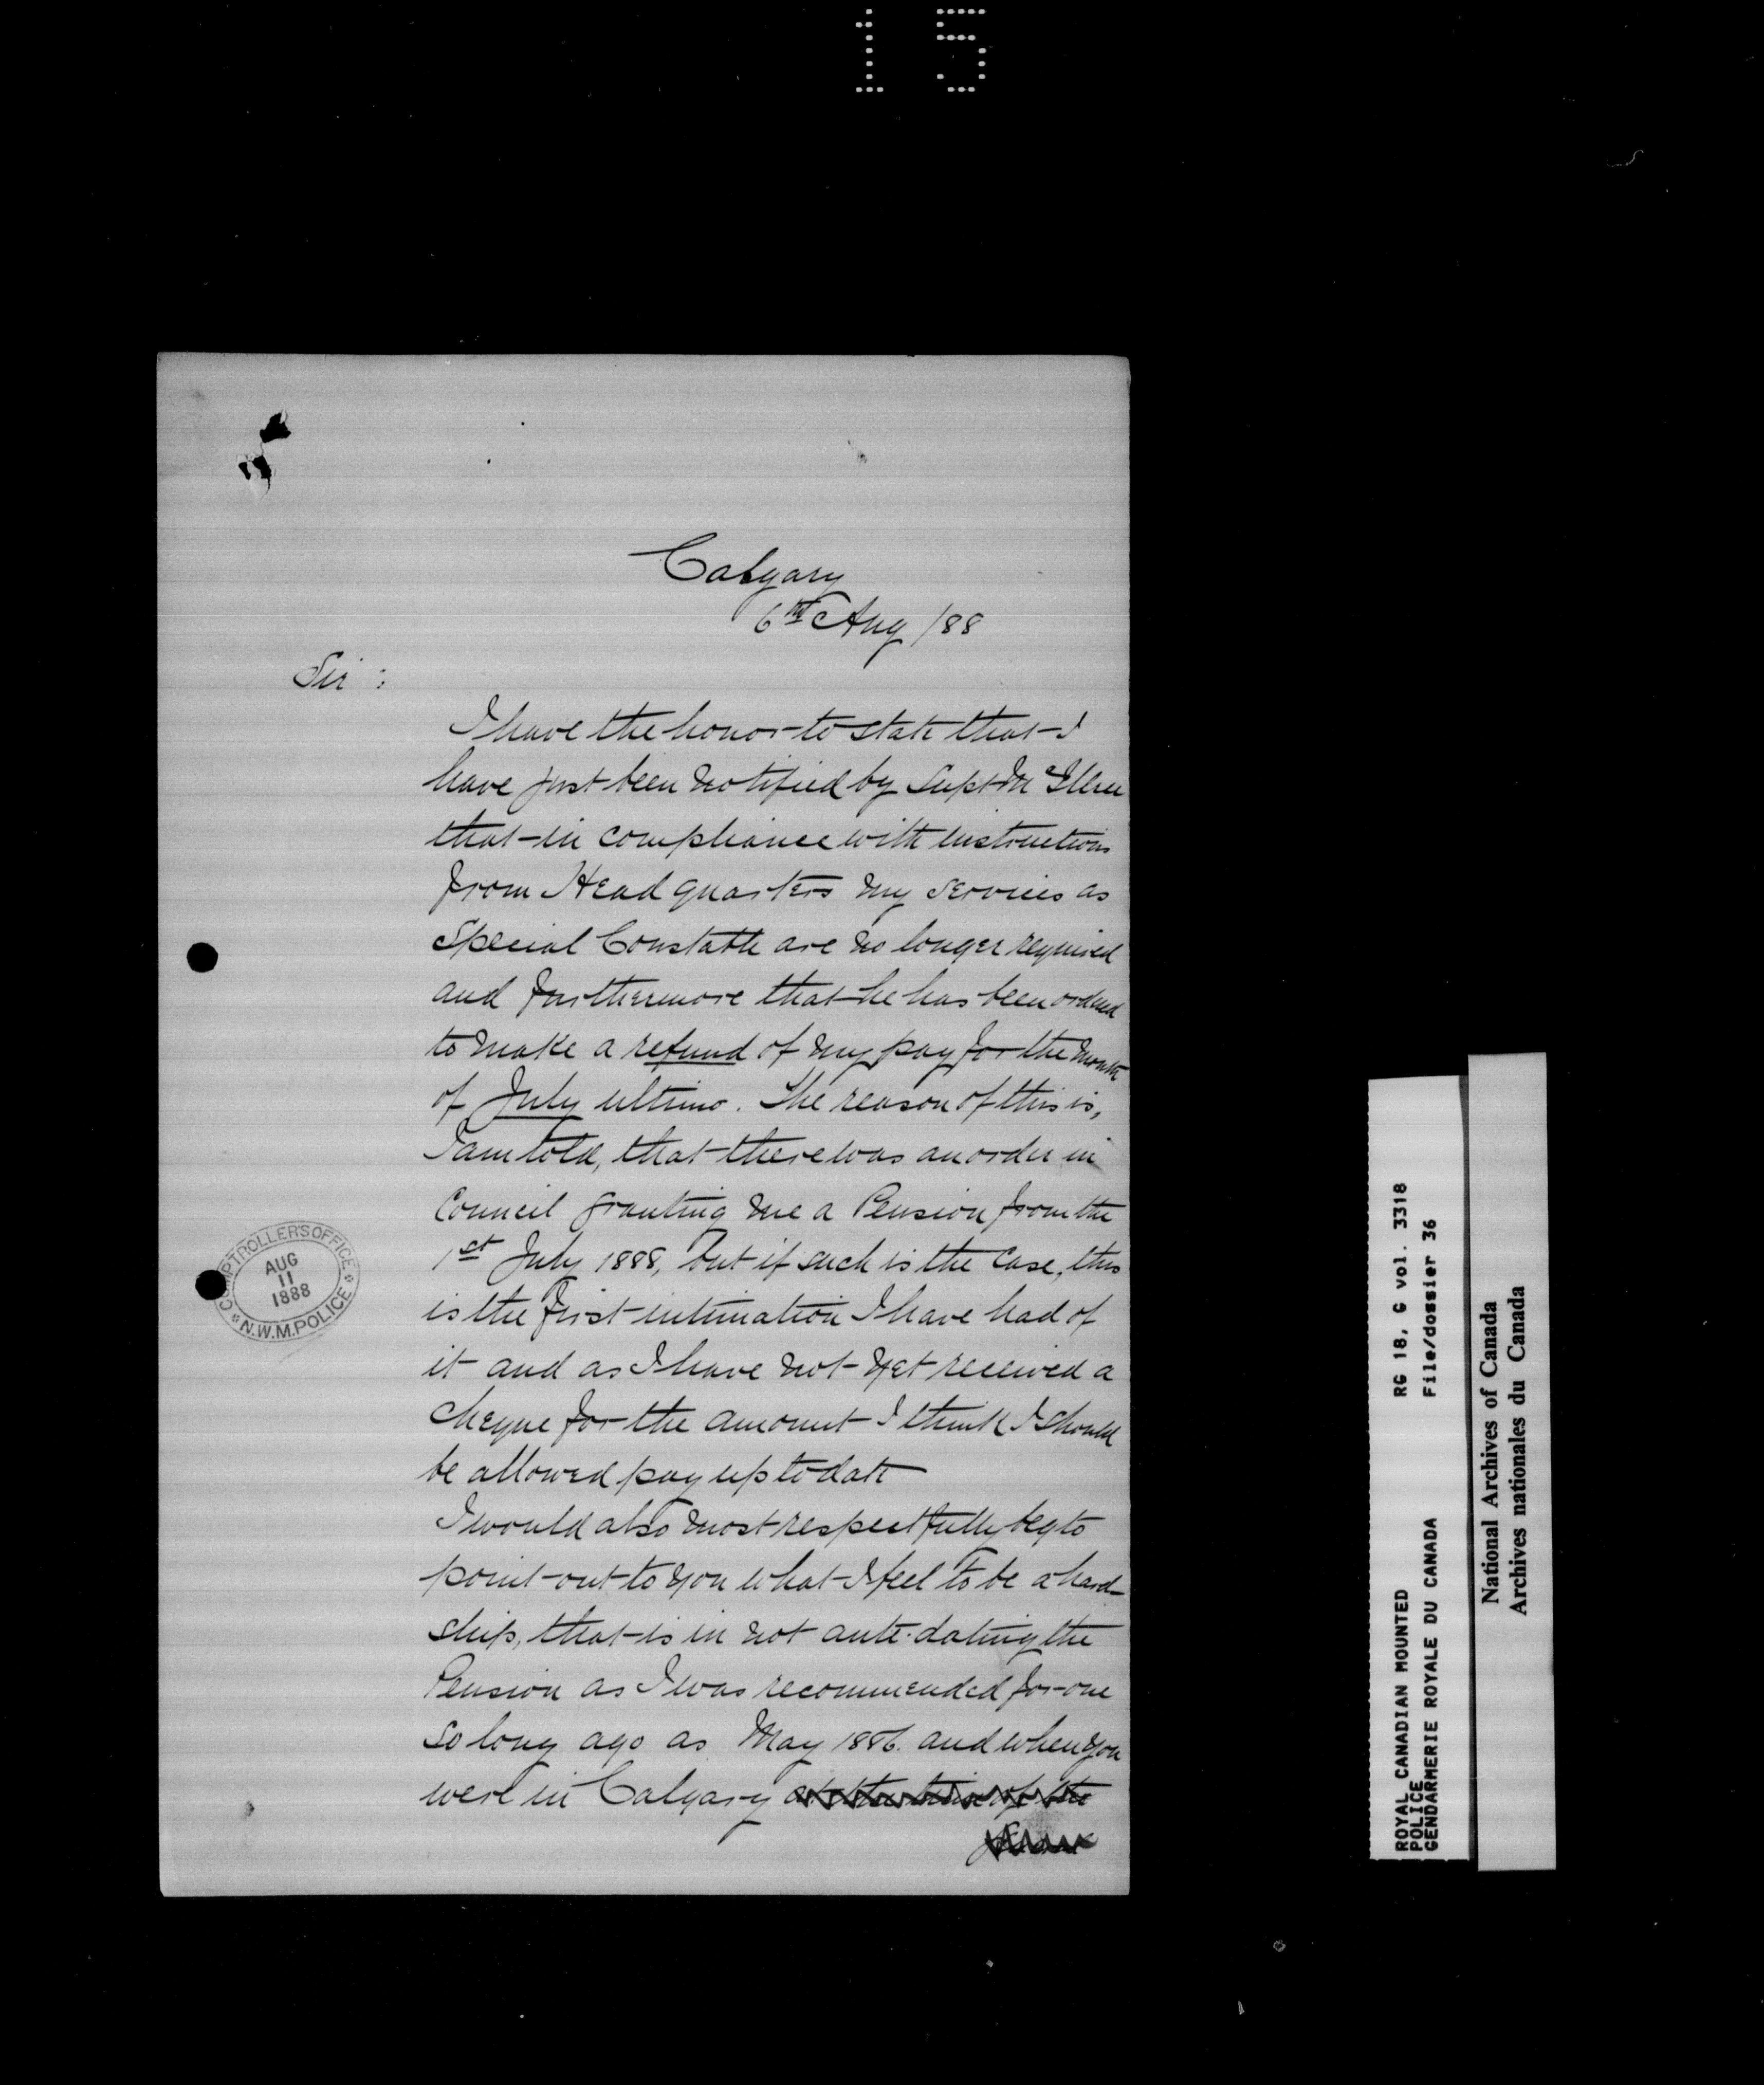 15
Calgary
6th Aug /88
Sir :
I have the honor to state that I
have just been notified by Supt McIllree
that in compliance with instructions
from Head quarters my services as
Special Constable are no longer required
and furthermore that he has been ordered
to make a refund of my pay for the month
of July ultimo. The reason of this is,
I am told, that there was an order in
Council granting me a Pension from the
1st July 1888, but if such is the case, this
is the first intimation I have had of
it and as I have not yet received a
cheque for the amount I think I should
be allowed pay up to date
I would also most respectfully beg to
point out to you what I feel to be a hard-
ship, that is in not ante-dating the
Pension as I was recommended for one
so long ago as May 1886. and when you
were in Calgary at the time of the
COMPTROLLER'S OFFICE
AUG
11
1888
N.W.M.POLICE
ROYAL CANADIAN MOUNTED RG 18, G vol. 3318
POLICE
GENDARMERIE ROYALE DU CANADA File/dossier 36
National Archives of Canada
Archives nationales du Canada